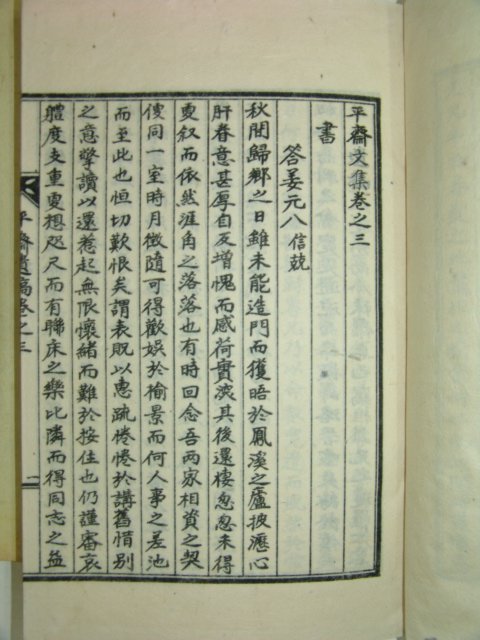 平齋文集卷之三
書
答姜元八信兢
秋間歸鄉之日雖未能造門而獲晤於鳳溪之廬披瀝心
肝眷意甚厚自反增愧而感荷實深其後還棲忽忽未得
更叙而依然涯角之落落也有時回念吾兩家相資之契
倐同一室時月徵隨可得歡娱於揄景而何人事之差池
而至此也恒切歎恨矣謂表貺以惠疏惓惓於講舊惜別
之意擎讀以還惹起無限懷緒而難於按住也仍謹審哀
體度支重更想咫尺而有聯床之樂比隣而得同志之益
平齋遺稿卷之三
一